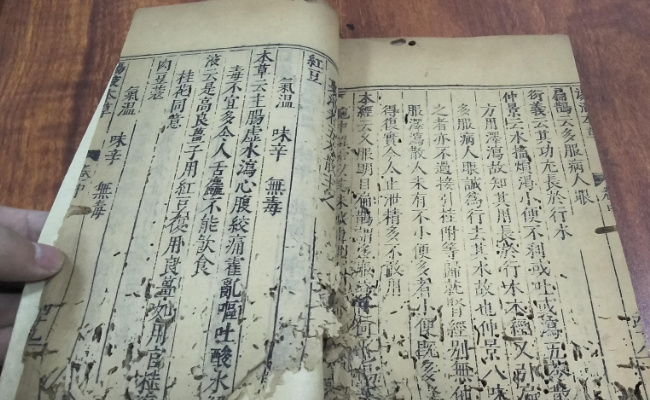 扁鵲云多服病人眼
衍義云其功尤長於行水
仲景云水搐煩渴小便不利或吐或瀉五苓散
方用澤瀉故知其用長於行水本經又引扁
多服病人眼誠為行去其水故也仲景八味
之者亦不過接引桂附等歸就腎經別無他
服澤瀉散人未有不小便多者小便既多
得復實今人止泄精多不敢用
本經云久服明目扁鵲謂多服
紅豆
氣溫 味辛 無毒
本草云主腸虛水瀉心腹絞痛霍亂嘔吐酸水
毒不宜多令人舌麤不能飲食
液云是高良薑子用紅豆復用良薑如用官桂
桂花同意
肉豆蔻
氣溫 味辛 無毒
本草 卷中